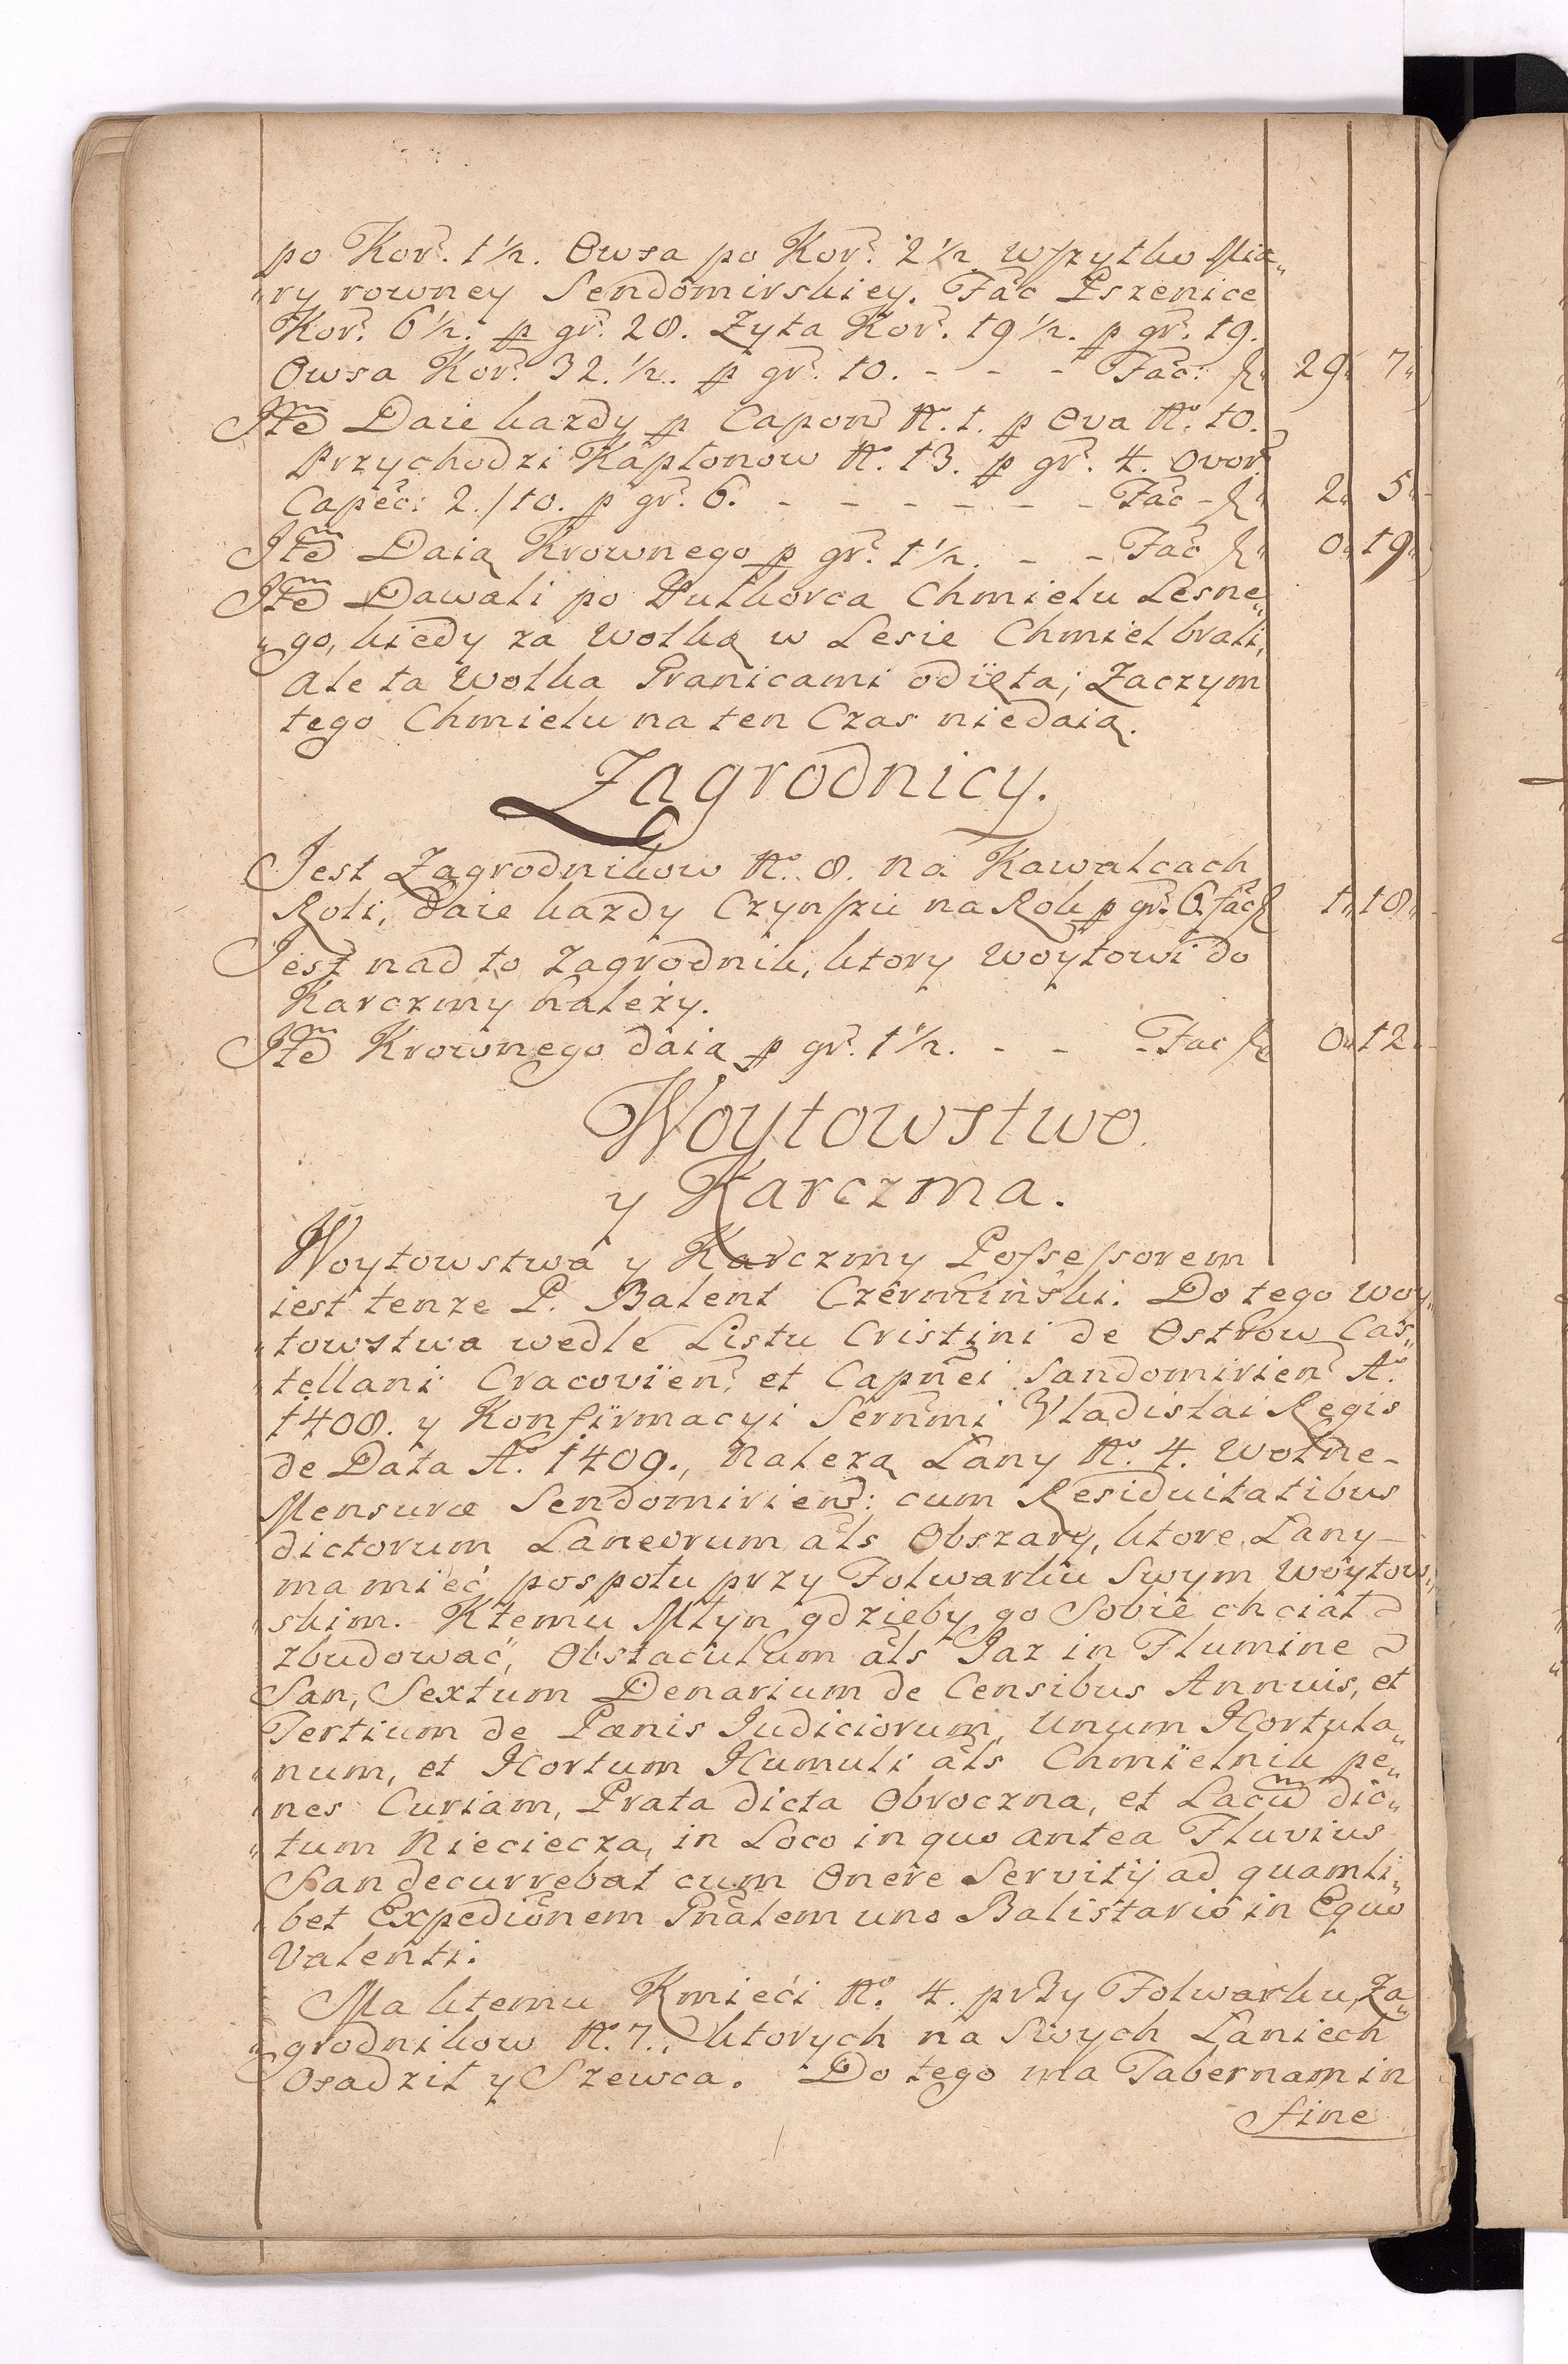 po Kor. 1½. Owsa po Kor. 2½ wszytko Mia„
„ry rowney Sendomirskiey. Fac Pszenice
Kor. 6½. p gr. 28. Zyta Kor. 19½. p gr. 19.
Owsa Kor. 32.½. p gr. 10. - - - Fac: fl„ 29„ 7„
Itm Daie kazdy p Capon No. 1. p Ova No. 10.
Przychodzi Kapłonow No. 13. p gr. 4. Ovor.
Capec: 2./10. p gr. 6. - - - - - - Fac - fl„ 2„ 5„
Itm Daią Krownego p gr. 1½. - - Fac fl„ 0„ 19„
Itm Dawali po Putkorca Chmielu Lesne„
„go, kiedy za Wolką w Lesie Chmiel brali,
ale ta Wolka Granicami odięta; Zaczym
tego Chmielu na ten Czas niedaią.
Zagrodnicy.
Jest Zagrodnikow No. 8. na Kawalcach
Roli, daie kazdy Czynszu na Rok p gr. 6. fac fl 1„ 18„
Jest nad to Zagrodnik, ktory Woytowi do
Karczmy należy.
Itm Krownego daią p gr. 1½. - - - Fac fl„ 0„ 12„
Woytowstwo.
y Karczma.
Woytowstwa y Karczmy Possessorem
iest tenze P. Balent Czermiński. Do tego Woy„
„towstwa wedle Listu Cristini de Ostrow Cas„
„tellani Cracovien. et Capnei Sandomirien Ao.
1408. y Konfirmacyi Sernmi Vladislai Regis
de Data Ao. 1409., Należą Łany No. 4. Wolne -
Mensuræ Sendomirien: cum Residuitatibus
dictorum Laneorum als Obszary, ktore Łany -
ma mieć pospołu przy Folwarku Swym Woytow„
„skim. Ktemu Młyn gdzieby go Sobie chciał
zbudować, Obstaculum als Jaz in Flumine
San, Sextum Denarium de Censibus Annuis, et
Tertium de Pænis Judiciorum, unum Hortula„
„num, et Hortum Humuli als Chmielnik pe„
„nes Curiam, Prata dicta Obroczna, et Lacum dic„
„tum Nieciecza, in Loco in quo antea Fluvius
San decurrebat cum Onere Servitij ad quamli„
„bet Expedionem Gnalem uno Balistario in Equo
Valenti.
Ma ktemu Kmieći No. 4. przy Folwarku, Za„
„grodnikow No. 7., ktorych na Swych Łaniech
Osadził y Szewca. Do tego ma Tabernam in
fine